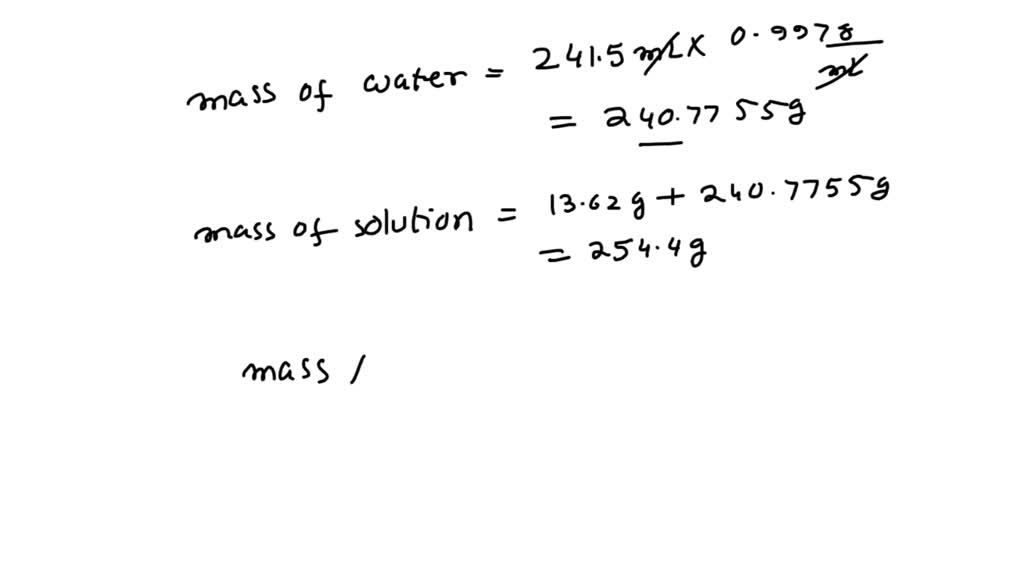 mass of water = 241.5 mL x 0.997 g/mL
= 240.7755g
mass of solution = 13.62g + 240.7755g
= 254.4g
mass /